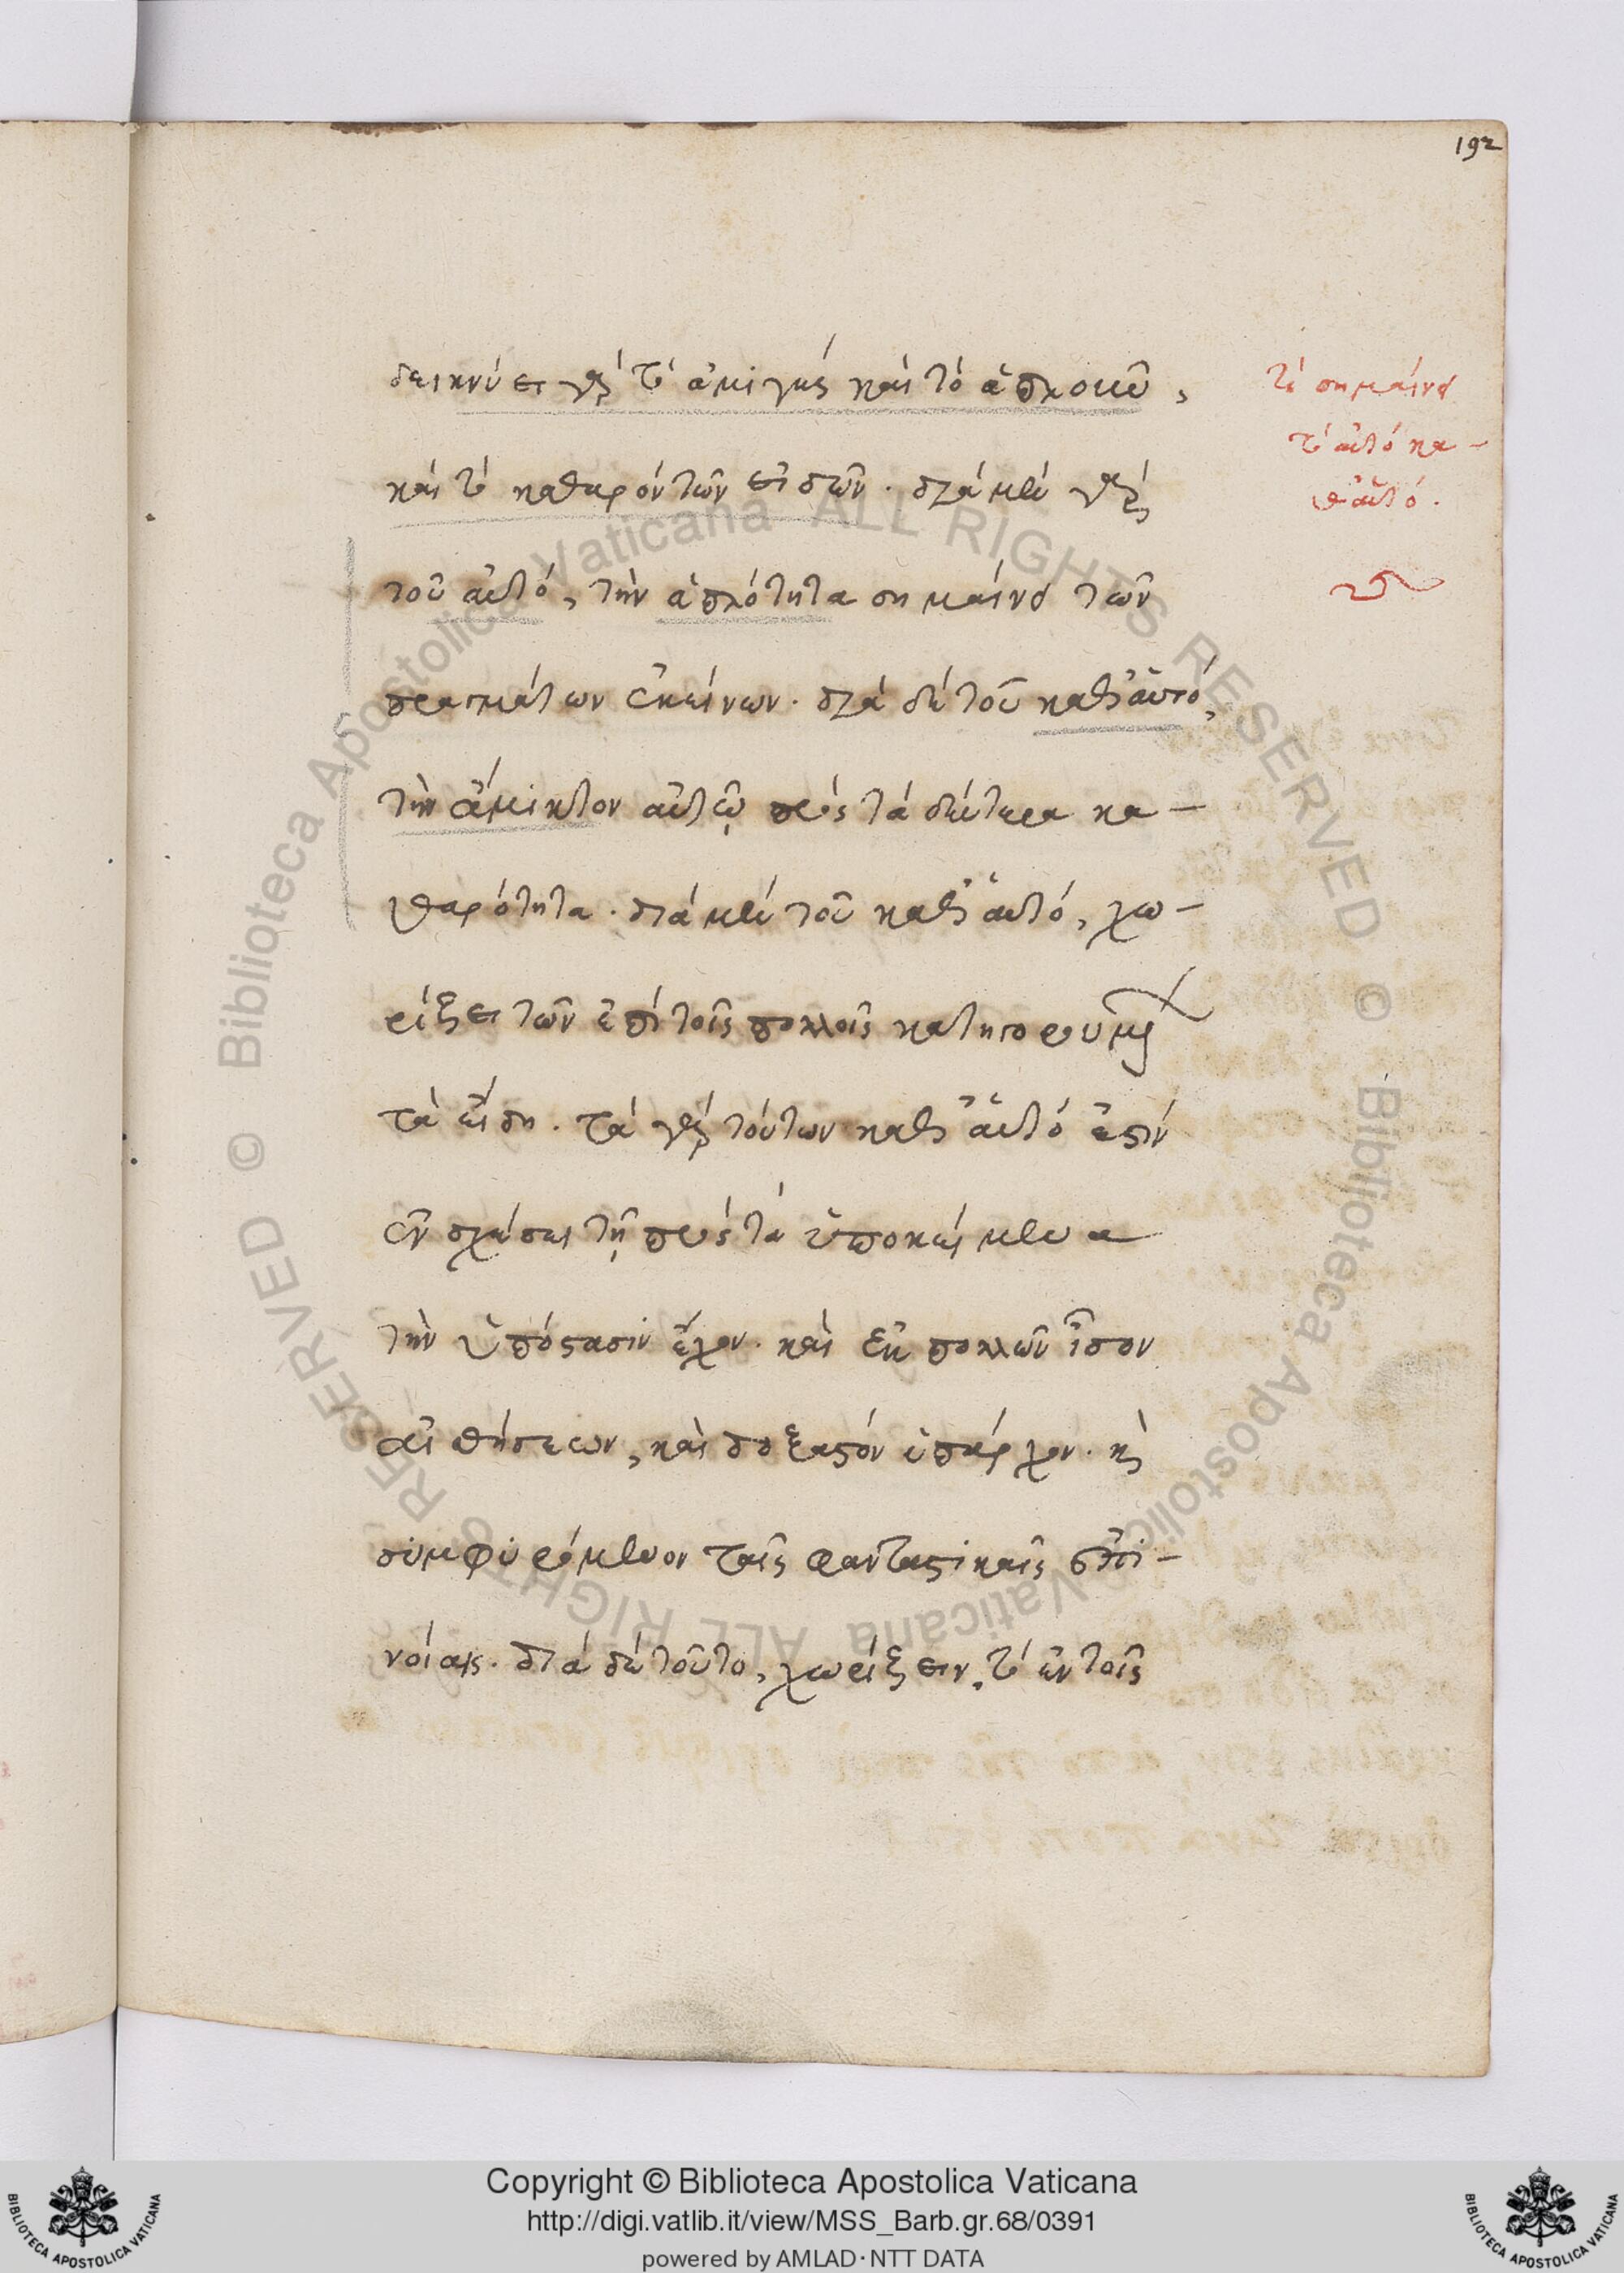 192
δεικνύει γὰρ τὸ ἀμιγὲς καὶ τὸ ἁπλοικὸν,
καὶ τὸ καθαρὸν τῶν εἰδῶν. διὰ μὲν γὰρ
τοῦ αὐτό, τὴν ἁπλότητα σημαίνει τῶν
πραγμάτων ἐκείνων. διὰ δὲ τοῦ καθ' αὑτό,
τὴν ἄμικτον αὐτῶν πρὸς τὰ δεύτερα κα-
θαρότητα. διὰ μὲν τοῦ καθ' αὑτό, χω-
ρίζει τῶν ἐπὶ τοῖς πολλοῖς κατηγορουμένων
τὰ εἴδη. τὰ γὰρ τούτων καθ' αὑτό ἐστιν
ἐν σχέσει τῇ πρὸς τὰ ὑποκείμενα
τὴν ὑπόστασιν ἔχον. καὶ ἐκ πολλῶν ἰσον
αἰσθήσεων, καὶ δοξαστὸν ὑπάρχον. καὶ
συμφυρόμενον ταῖς φανταστικαῖς ἐπι-
νοίαις. διὰ δὲ τοῦτο, χωρίζειν, τὸ ἐν τοῖς
τί σημαίνει
τὸ αὐτὸ κα-
θ' αὑτό.
Copyright © Biblioteca Apostolica Vaticana
http://digi.vatlib.it/view/MSS_Barb.gr.68/0391
powered by AMLAD·NTT DATA
BIBLIOTECA APOSTOLICA VATICANA
BIBLIOTECA APOSTOLICA VATICANA
© Biblioteca Apostolica Vaticana ALL RIGHTS RESERVED
© Biblioteca Apostolica Vaticana ALL RIGHTS RESERVED